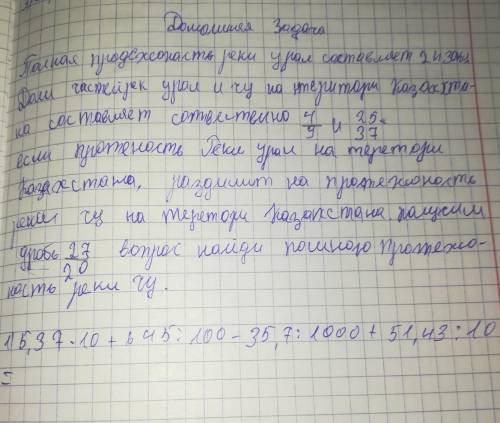 Домашняя Задача
Полная продежсонасть реки урал составляет 2430км
Доли частей рек урал и чу на територи Казахста-
на составляет сответственно 4/9 и 25/37.
если протеность Реки урал на теретори
Казахстана, раздилит на протежоность
реки чу на теретори Казахстана получим
дробь 27/20 вопрос найди полною протежо-
ность реки чу.
1) 5,37 · 10 + 645 : 100 - 35,7 : 1000 + 51,43 : 10
=